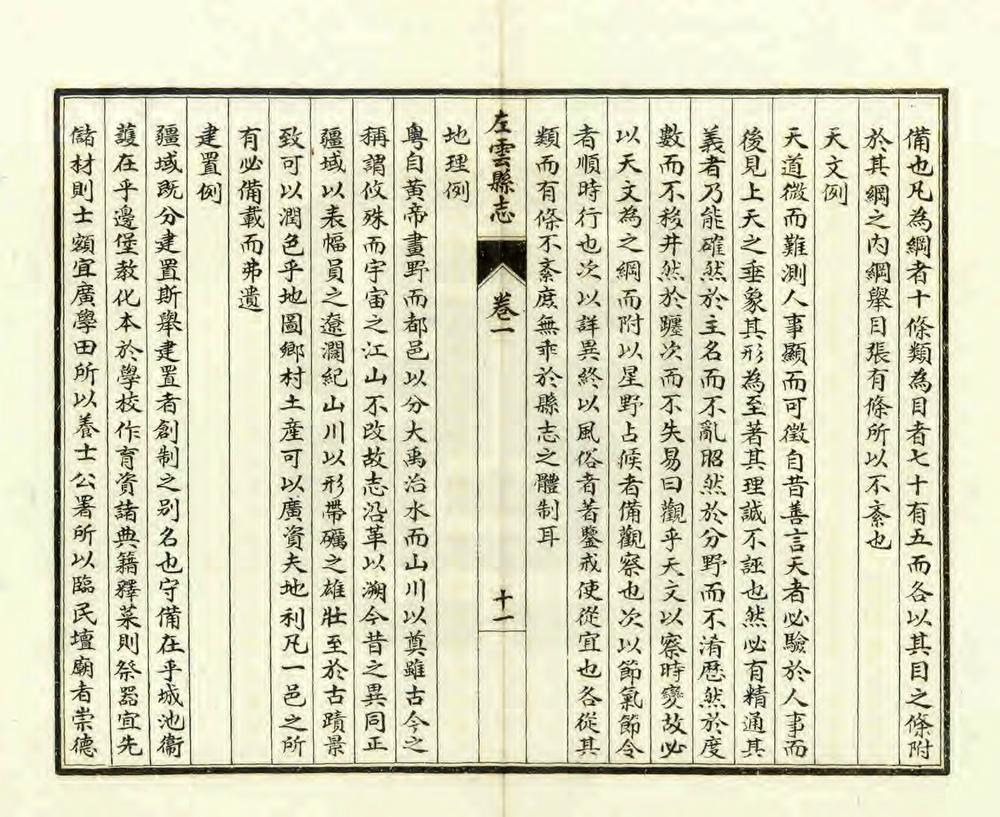 備也凡為綱者十條類為目者七十有五而各以其目之條附
於其綱之內綱舉目張有條所以不紊也
天文例
天道微而難測人事顯而可徵自昔善言天者必驗於人事而
後見上天之垂象其形為至著其理誠不誣也然必有精通其
義者乃能確然於主名而不亂昭然於分野而不淆歷然於度
數而不移井然於躔次而不失易曰觀乎天文以察時變故必
以天文為之綱而附以星野占候者備觀察也次以節氣節令
者順時行也次以詳異終以風俗者著鑒戒使從宜也各從其
類而有條不紊庶無乖於縣志之體制耳
左雲縣志
卷一
十一
地理例
粵自黃帝畫野而都邑以分大禹治水而山川以奠雖古今之
稱謂攸殊而宇宙之江山不改故志沿革以溯今昔之異同正
疆域以表幅員之遼濶紀山川以形帶礪之雄壯至於古蹟景
致可以潤色乎地圖鄉村土產可以廣資夫地利凡一邑之所
有必備載而弗遺
建置例
疆域既分建置斯舉建置者創制之別名也守備在乎城池衞
護在乎邊堡教化本於學校作育資諸典籍釋菜則祭器宜先
儲材則士額宜廣學田所以養士公署所以臨民壇廟者崇德